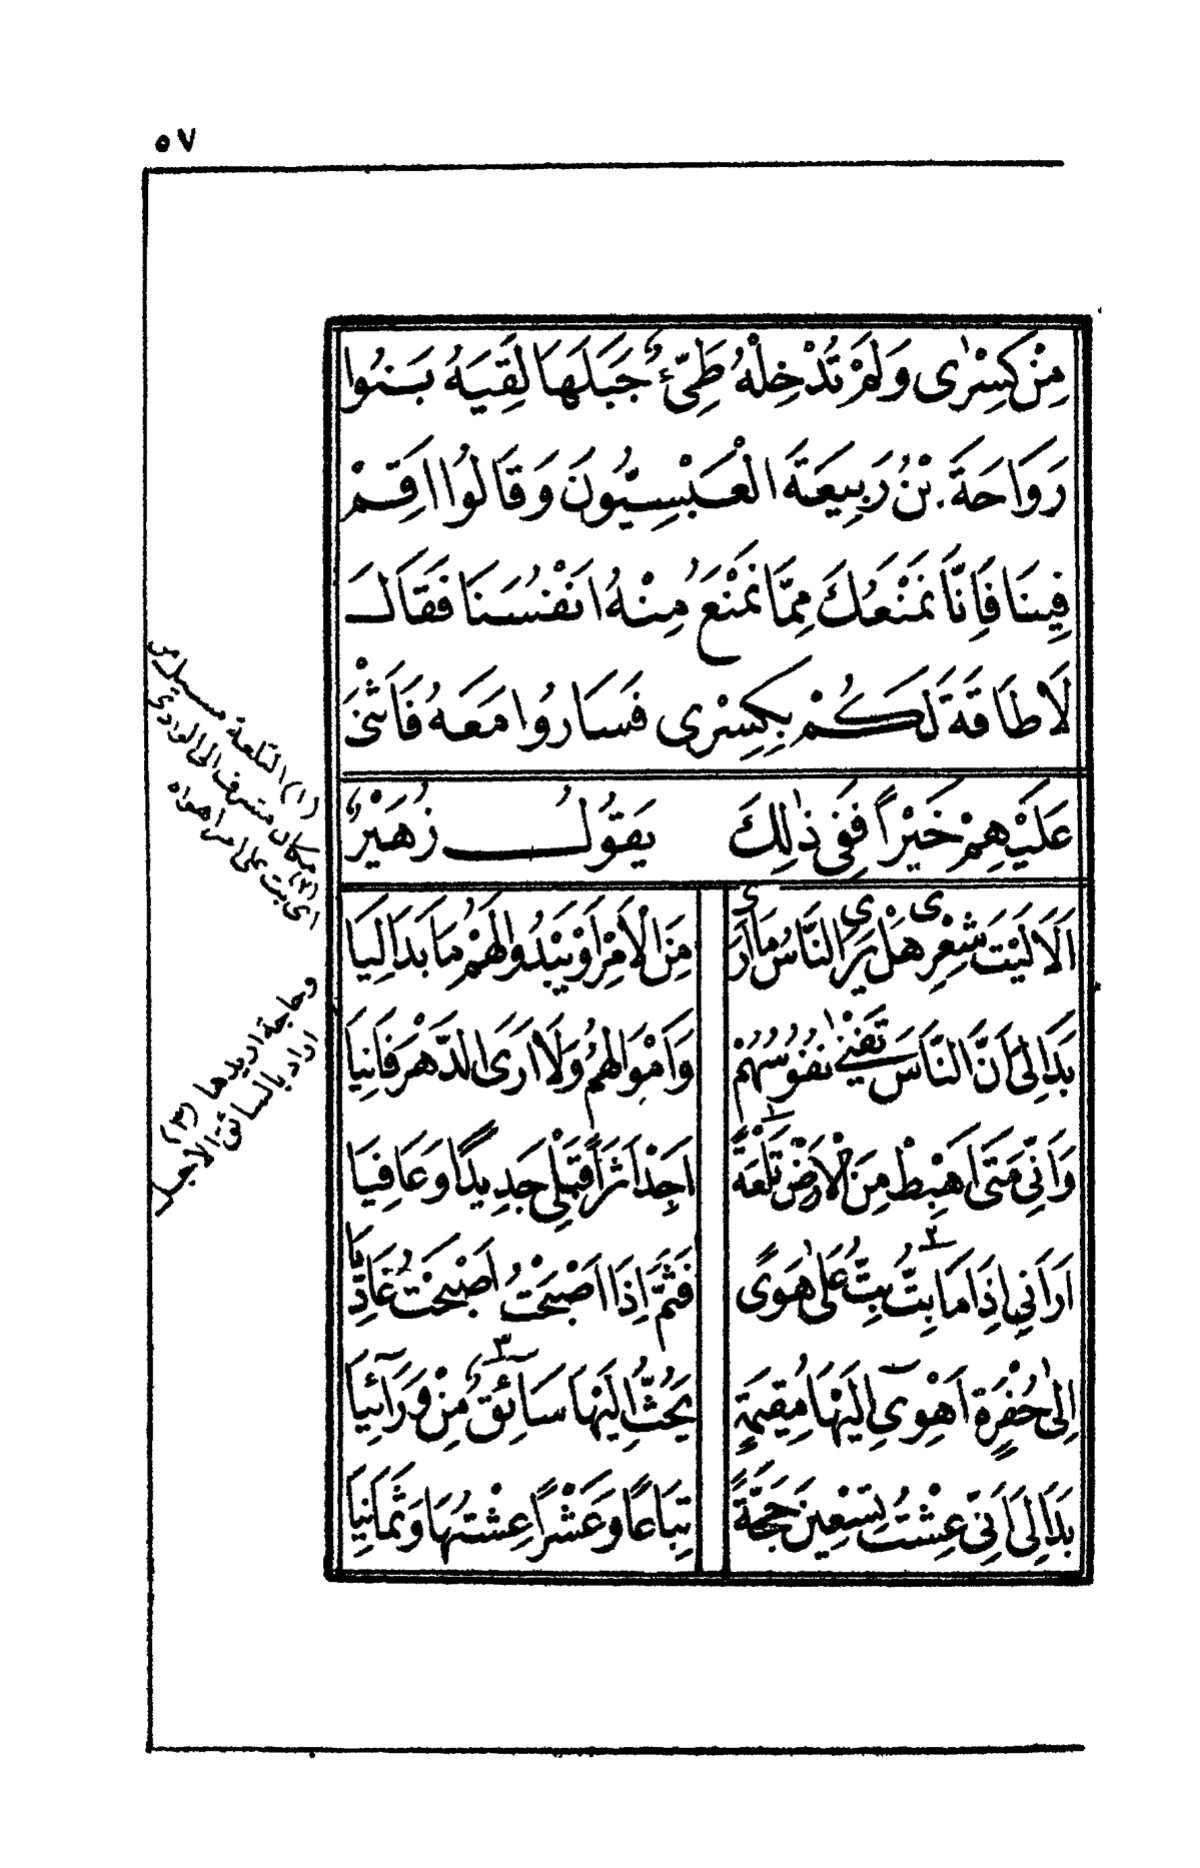 ٥٧
مِنْ كِسْرٰى وَلَمْ تُدْخِلْهُ طَيِّءُ جَبَلَهَا لَقِيَهُ بَنُوا
رَوَاحَةَ بْنُ رَبِيعَةَ الْعَبْسِيُّونَ وَقَالُوا اقِمْ
فِينَا فَاِنَّا نَمْنَعُكَ مِمَّا نَمْنَعُ مِنْهُ انْفُسَنَا فَقَالَ
لَا طَاقَةَ لَكُمْ بِكِسْرٰى فَسَارُوا مَعَهُ فَاَثْنٰى
عَلَيْهِمْ خَيْرًا فَفِى ذٰلِكَ يَقُولُ زُهَيْرٌ
اَلَا لَيْتَ شِعْرِى هَلْ يَرَى النَّاسُ مَا اَرَى مِنَ الْاَمْرِ اَوْ يَبْدُو لَهُمْ مَا بَدَا لِيَا
بَدَا لِىَ اَنَّ النَّاسَ تَفْنٰى نُفُوسُهُمْ وَاَمْوَالُهُمْ وَلَا اَرَى الدَّهْرَ فَانِيَا
وَاِنِّى مَتَى اَهْبِطْ مِنَ الْاَرْضِ تَلْعَةً ١ اَجِدْ اَثَرًا قَبْلِى جَدِيدًا وَعَافِيَا
اَرَانِى اِذَا مَا بِتُّ ٢ بِتُّ عَلٰى هَوًى فَثَمَّ اِذَا اَصْبَحْتُ اَصْبَحْتُ غَادِيَا
اِلٰى حُفْرَةٍ اَهْوِى اِلَيْهَا مُقِيمَةٍ يَحُثُّ اِلَيْهَا سَائِقٌ ٣ مِنْ وَرَائِيَا
بَدَا لِىَ اَنِّى عِشْتُ تِسْعِينَ حَجَّةً تِبَاعًا وَعَشْرًا عِشْتُهَا وَثَمَانِيَا
(١) التلعة مسيل من
مكان مشرف الى الوادى
(٢) اى بت على امر اهواه
وحاجة اريدها (٣)
اراد بالسائق الاجل